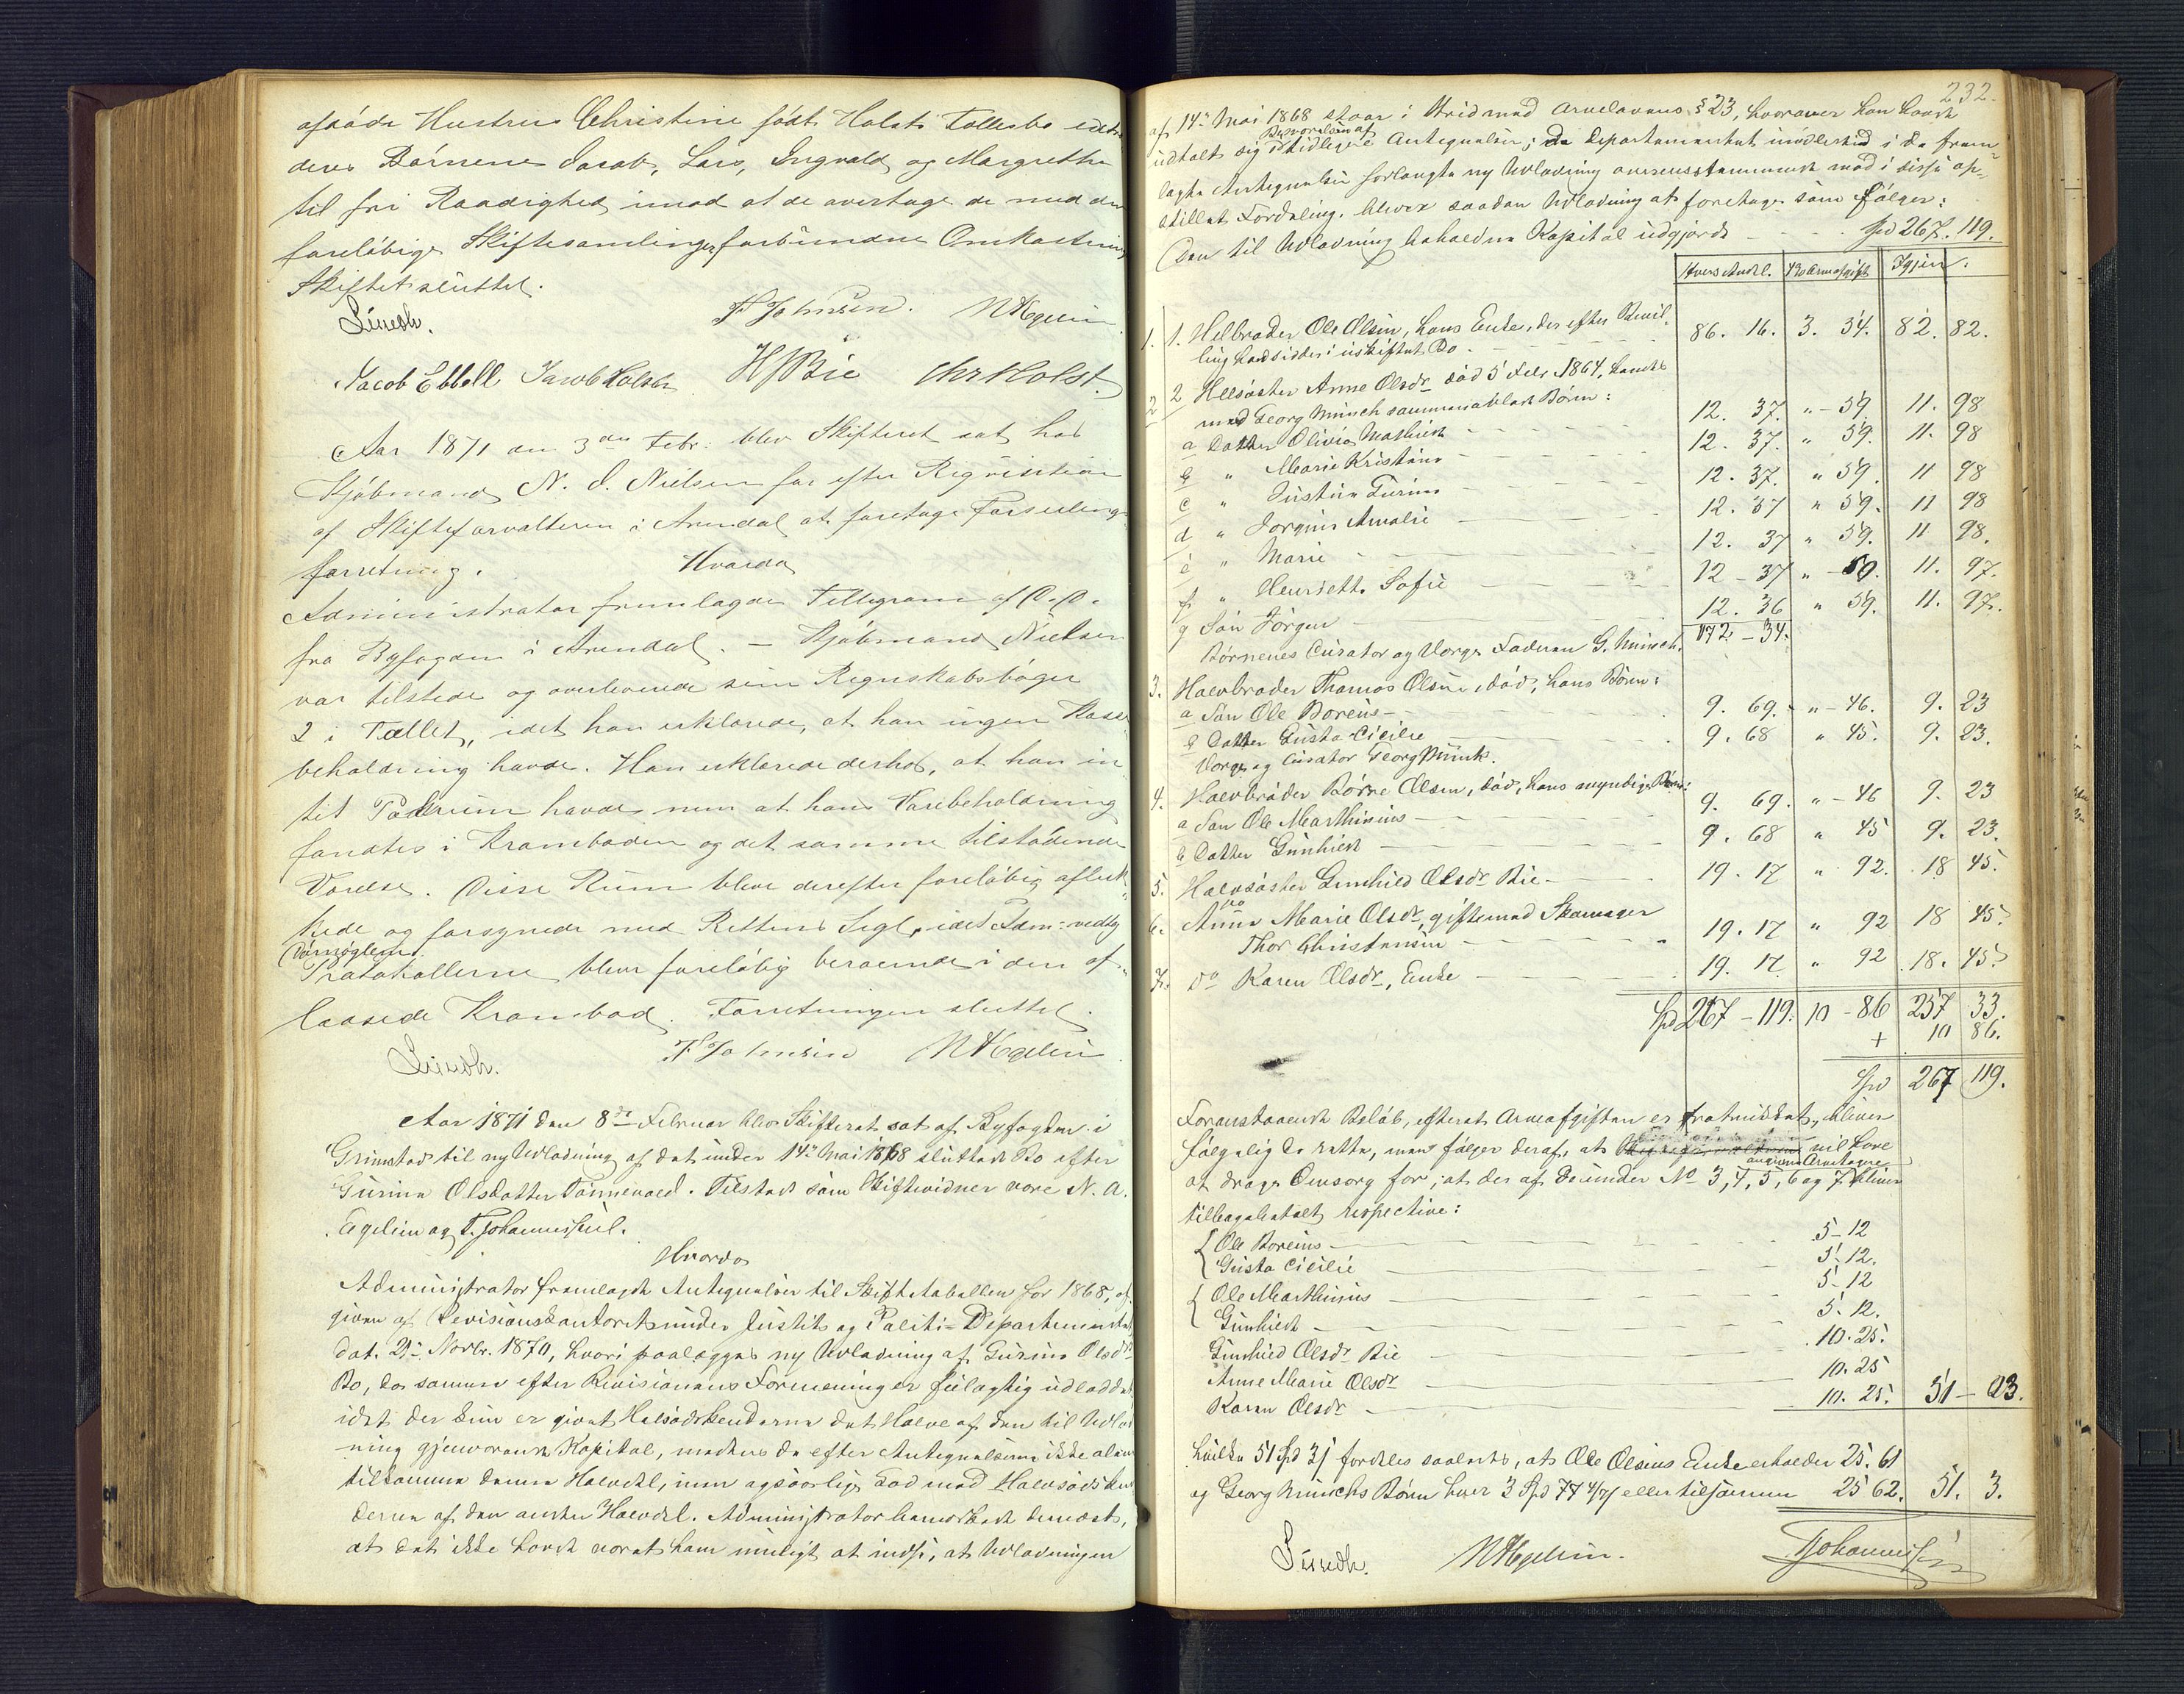 afdøde Hustru Christine født Holst Tallesbo
deres Børnene Jacob, Lars, Ingvald og Margrethe
til fri Raadighed imod at de overtage de med den
foreløbige Skiftesamlinger forbundne Omkostning
Skiftet sluttet.
F Johnsen. NAEgelin
Jacob Ebbell Jacob Holst HJBie Chr Holst.
Aar 1871 den 3die Febr: blev Skifteret sat hos
Kjøbmand N. S. Nielsen for efter Reqvisition
af Skifteforvalteren i Arendal at foretage Forseilings
forretning. Hvorda
Administrator fremlagde Tellegram af D.D.
fra Byfogden i Arendal. — Kjøbmand Nielsen
var tilstede og overleverede sine Regnskabsbøger
2 i Tallet, idet han erklærede, at han ingen Kasse
beholdning havde. Han erklærede derhos, at han in
tet Pakrum havde men at hans Varebeholdning
fandtes i Kramboden og det samme tilstødende
Værelse. Disse Rum bleve derefter foreløbig afluk
kede og forsynede med Rettens Segl, idet Adm: vedtog
Dørnøglerne.
Protokollerne bleve foreløbig beroende i den af-
laasede Krambod. Forretningen sluttet.
F Johnsen NAEgelin
Aar 1871 den 8de Februar blev Skifteret sat af Byfogden i
Grimstad til ny Udlodning af det under 14de Mai 1868 sluttede Bo efter
Gurine Olsdatter Tønnevold. Tilstede som Skiftevidner vare N. A.
Egelin og T. Johannessen.
Hvorda
Administrator fremlagde Antegnelser til Skiftetabellen for 1868, af
given af Revisionskontoret under Justits og Politi-Departementet
dat. 21de Novbr. 1870, hvori paalægges ny Udlodning af Gurine Olsdtr
Bo, da samme efter Revisionens Formening er feilagtig udloddet
idet der kun er givet Helsødskenderne det Halve af den til Udlod
ning gjenværende Kapital, medens de efter Antegnelserne ikke alene
tilkomme denne Halvdel, men ogsaa lige Lod med Halvsødsken
derne af den anden Halvdel. Administrator bemærkede dernæst,
at det ikke havde været ham muligt at indse, at Udlodningen
232.
af 14de Mai 1868 staar i Strid med Arvelovens § 23, hvorover han havde
Besvarelsen af
udtalt sig i tidligere Antegnelser; da Departementet imidlertid i de frem
lagte Antegnelser forlangte ny Udlodning overensstemmende med i disse op-
stillet Fordeling, bliver saadan Udlodning at foretage som følger:
Den til Udlodning beholdne Kapital udgjorde - - - Spd 267. 119.
Hvers Andel. 4% Arveafgift Igjen.
1. 1. Helbroder Ole Olsen, hans Enke, der efter Bevil-
ling hensidder i uskiftet Bo - 86. 16. 3. 54. 82. 82.
2 2 Helsøster Anne Olsdr død 5 Febr 1864, havde
med Georg Münch sammenavlede Børn:
a Datter Olivia Mathilde 12. 37. " - 59. 11. 98
b " Marie Kristine 12. 37. " 59. 11. 98
c " Justine Turine 12. 37. " 59. 11 98
d " Jørgine Amalie 12. 37 " 59. 11 98
e " Marie 12. 37 " 59. 11 98.
f " Henriette Sofie 12 - 37 " - 59. 11. 97.
g Søn Jørgen 12. 36 " 59. 11. 97.
Børnenes Curator og Værge Faderen G. Münch. 172 - 34.
3. Halvbroder Thomas Olsen, død, hans Børn:
a Søn Ole Boreus 9. 69. " - 46. 9. 23
b Datter Gusta Cicilie 9. 68 " 45. 9. 23.
Værge og Curator Georg Münch.
4. Halvbroder Børre Olsen, død, hans myndige Børn:
a Søn Ole Marthinius 9. 69. " - 46 9. 23
b Datter Gunhild 9. 68 " 45 9. 23.
5. Halvsøster Gunhild Olsdr Bie 19. 17 " 92. 18 45.
do
6. Anne Marie Olsdr, gift med Skomager
Thor Christensen 19. 17 " 92 18 45.
7. do Karen Olsdr, Enke 19. 17. " 92 18. 45.
Spd 267 - 119. 10 - 86 257 33.
+ 10 86.
Spd 267 119.
Foranstaaende Beløb, efterat Arveafgiften er fratrukket, bliver
følgelig de rette, men følger deraf, at vil have
angivne Arvetagere
at drage Omsorg for, at der af de under No 3, 4, 5, 6 og 7 bliver
tilbagebetalt respective:
Ole Boreus 5 - 12
Gusta Cicilie 5 - 12.
Ole Marthinius 5 - 12
Gunhild 5. 12.
Gunhild Olsdr Bie 10. 25.
Anne Marie Olsdr 10. 25
Karen Olsdr 10. 25. 51 - 03.
hvilke 51 Spd 3 ß fordeles saaledes, at Ole Olsens Enke erholder 25. 61
og Georg Münchs Børn hver 3 Spd 77 4/7 ß eller tilsammen 25 62. 51. 3.
NAEgelin. TJohannessen